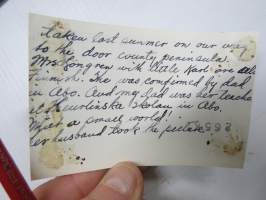 taken last summer on our way
to the door county peninsula.
Mrs. Longren with little Karl are also
Finnish. She was confirmed by dad
in Åbo. And my dad was her teacher
at Heurlinska Skolan in Åbo.
What a small world!
her husband took the picture